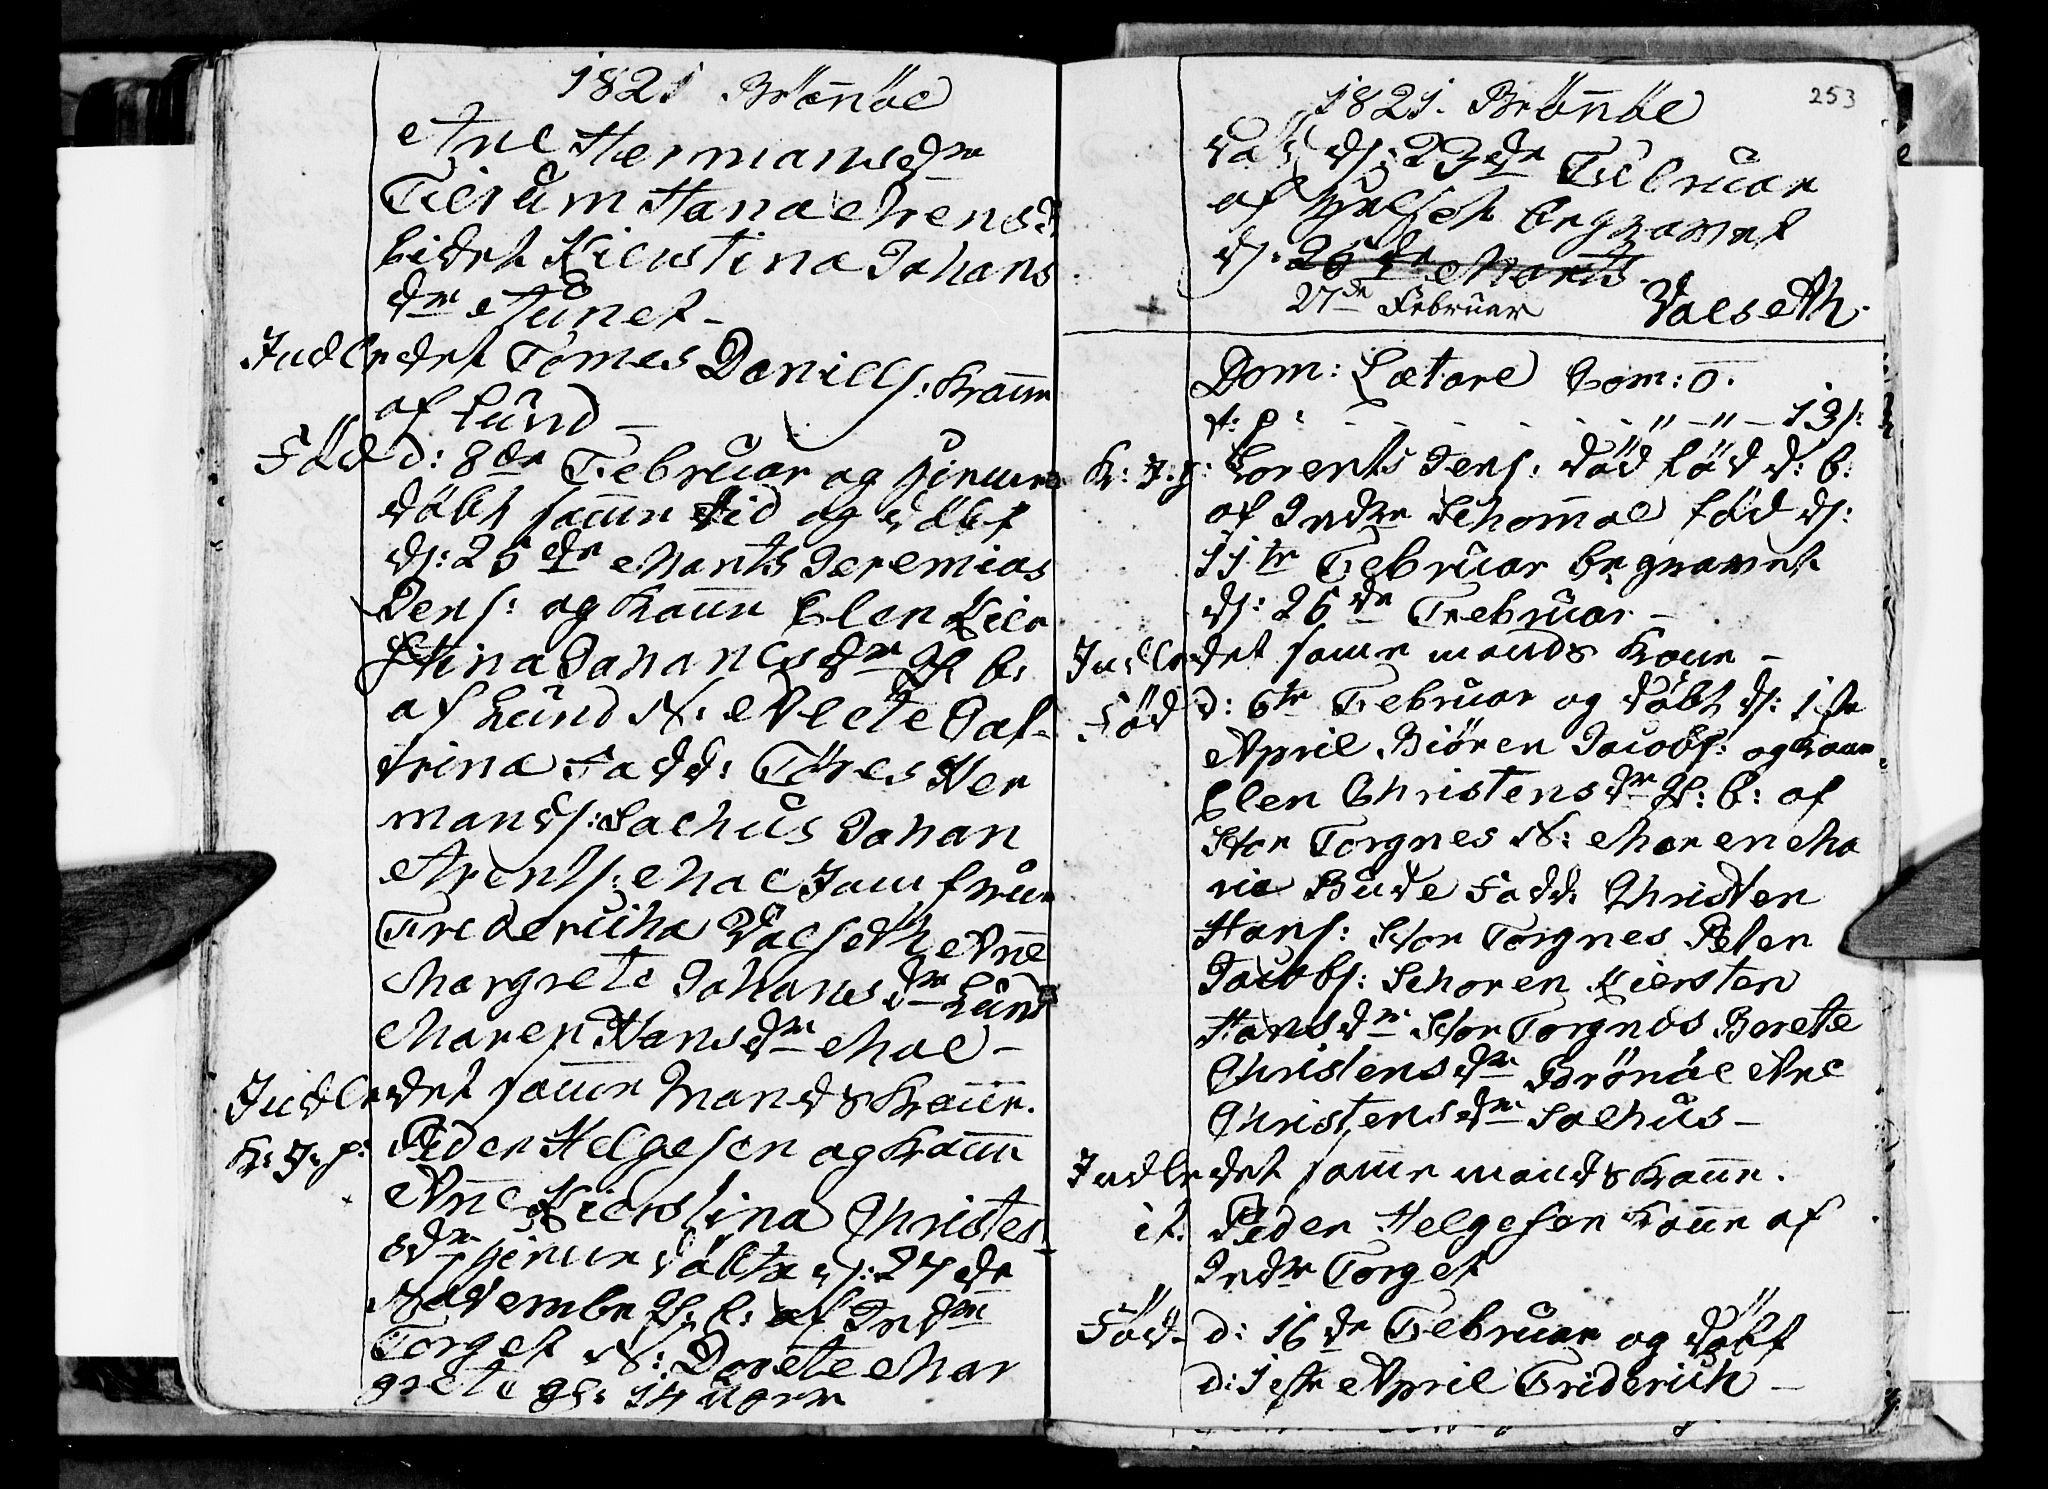 1821 Brönöe
Ane Hermansdr
Tilrum Hana Arensd
bidet Kierstina Johans
dr Tünet –
Indledet Tomes Daniels: Kaanne
af Lünd –
Föd d: 8de Februar og hiemme
döbt samme tid og döbt
d: 25de Marts Jeremias
Jens: og Kaane Elen Kier
stina Johanesdr Gf b:
af Lünd N: Alete Cat-
trina Fadd: Töres Her
mands: Salhus Johan
Arents: Moe Jomfrue
Fredericha Valseth Ane
Margrete Johansdr Lünd
Maren Hansdr Moe –
Indledet samme Mands Kaane.
K: J. p: Peder Helgesen og Kaane
Ane Kierstina Christens
dr hiemme döbte d: 27de
November Gf: b: af Indre
Torget N: Dorete Mar
grete gl: 14 uger
253
1821. Brönöe
död d: 23de Februar
af begravet
d: 26de Marts
27de Februar Valseth.
Dom: Lætare Com: 0.
f: p: - - - - - „ - „ – 13 s:
K: J. p: Lorents Jens: död föd d: b:
af Indre Schomoe föd d:
11te Februar begravet
d: 26de Februar –
Indledet same mands Kone –
Föd d: 6te Februar og döbt d: 1ste
April Biören Jacobs: og Kaane
Elen Christensdr Gf: b: af
Stor Torgnes N: Maren Ma
rie Bude Fadd: Christen
Hans: Stor Torgnes Peter
Jacobs: Schoren Kiersten
Hansdr Stor Torgnes Berete
Christensdr Brönöe Ane
Christensdr Salhus –
Indledet samme mands Kaane.
it. Peder Helgesen Kaane af
Indre Torget
Föd d: 16de Februar og döbt
d: 1ste April Friderich –